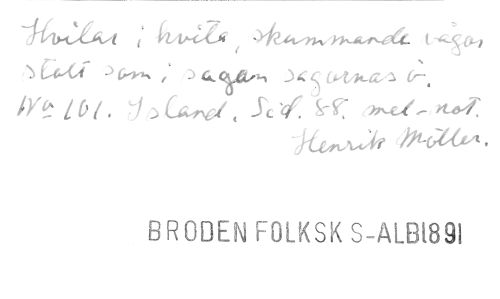 Hvilar i hvita, skummande vågor
stolt som i sagan sagornas ö.
No 101. Island. Sid. 88. med not.
Henrik Möller.
BRODEN FOLKSK S-ALB1891